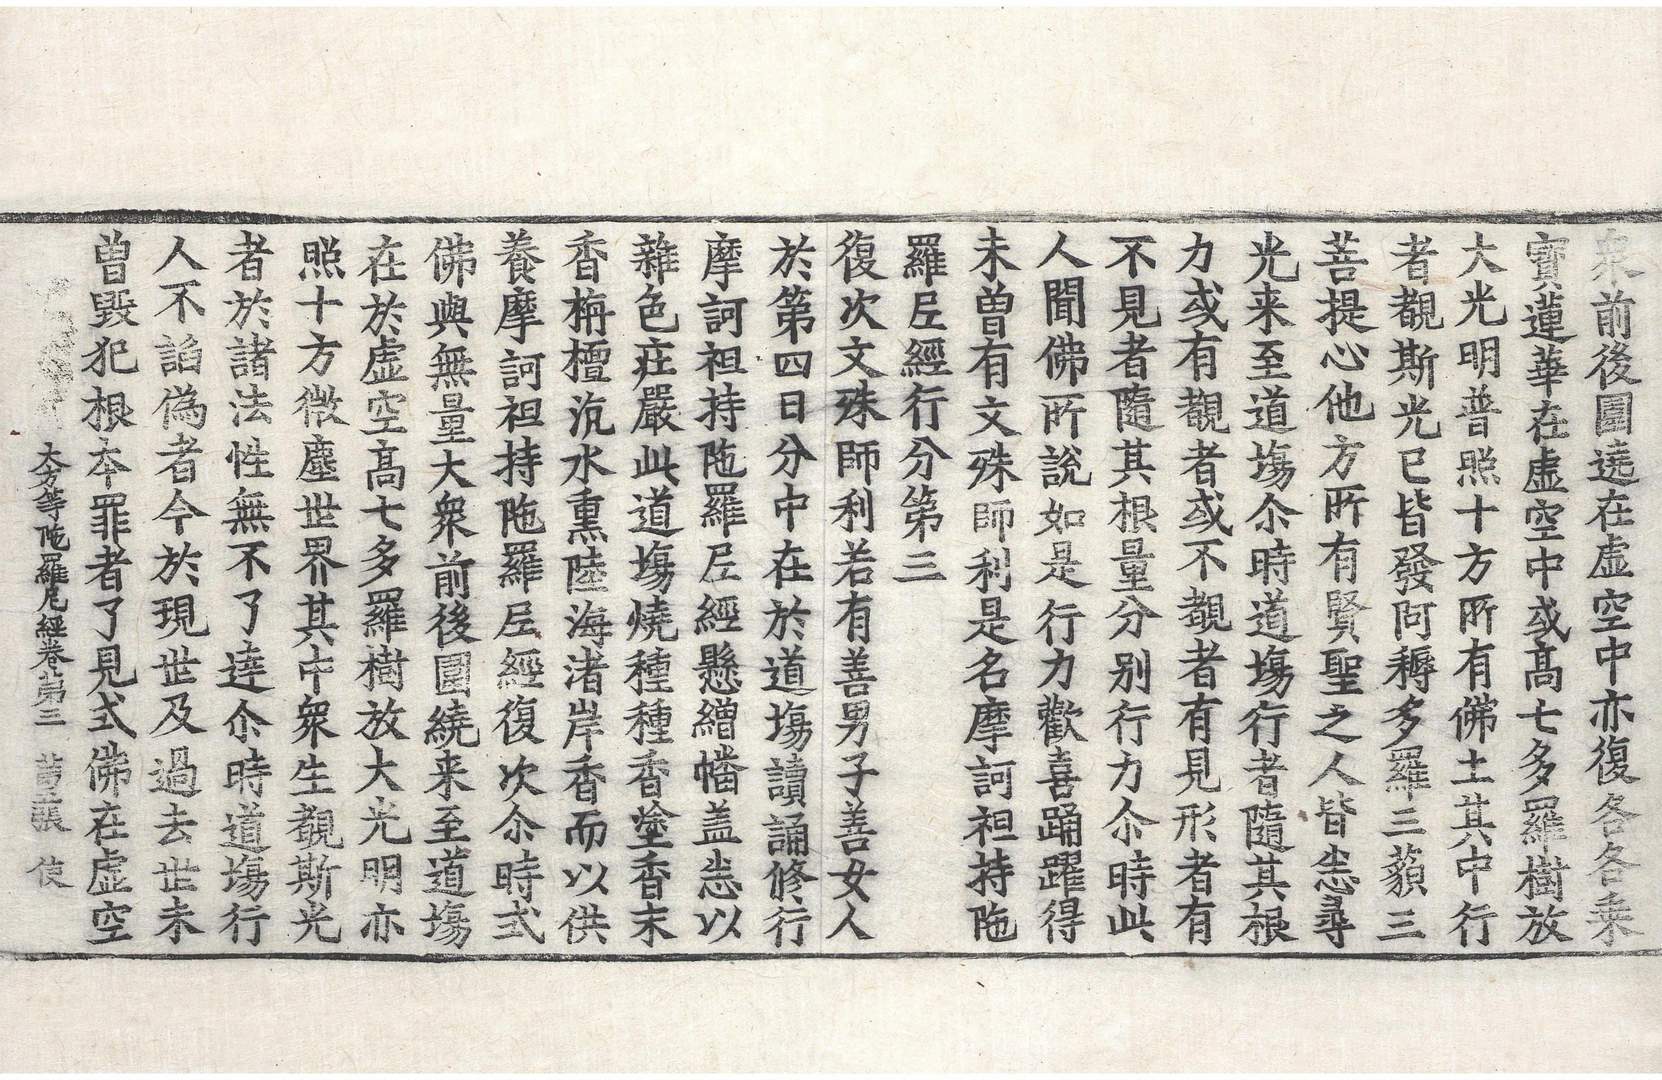 衆前後圍遶在虛空中亦復各各乘
寳蓮華在虛空中或髙七多羅樹放
大光明普照十方所有佛土其中行
者覩斯光已皆發阿耨多羅三藐三
菩提心他方所有賢聖之人皆悉尋
光来至道塲尒時道塲行者隨其根
力或有覩者或不覩者有見形者有
不見者隨其根量分别行力尒時此
人聞佛所說如是行力歡喜踊躍得
未曽有文殊師利是名摩訶袒持陁
羅尼經行分第三
復次文殊師利若有善男子善女人
於第四日分中在於道塲讀誦修行
摩訶袒持陁羅尼經懸繒幡盖悉以
雜色庄嚴此道塲燒種種香塗香末
香栴檀沉水熏陸海渚岸香而以供
養摩訶袒持陁羅尼經復次尒時式
佛與無量大衆前後圍繞来至道塲
在於虛空髙七多羅樹放大光明亦
照十方微塵世界其中衆生覩斯光
者於諸法性無不了達尒時道塲行
人不謟偽者今於現世及過去世未
曽毀犯根本罪者了見式佛在虛空
大方等陁羅尼經卷第三 張 使